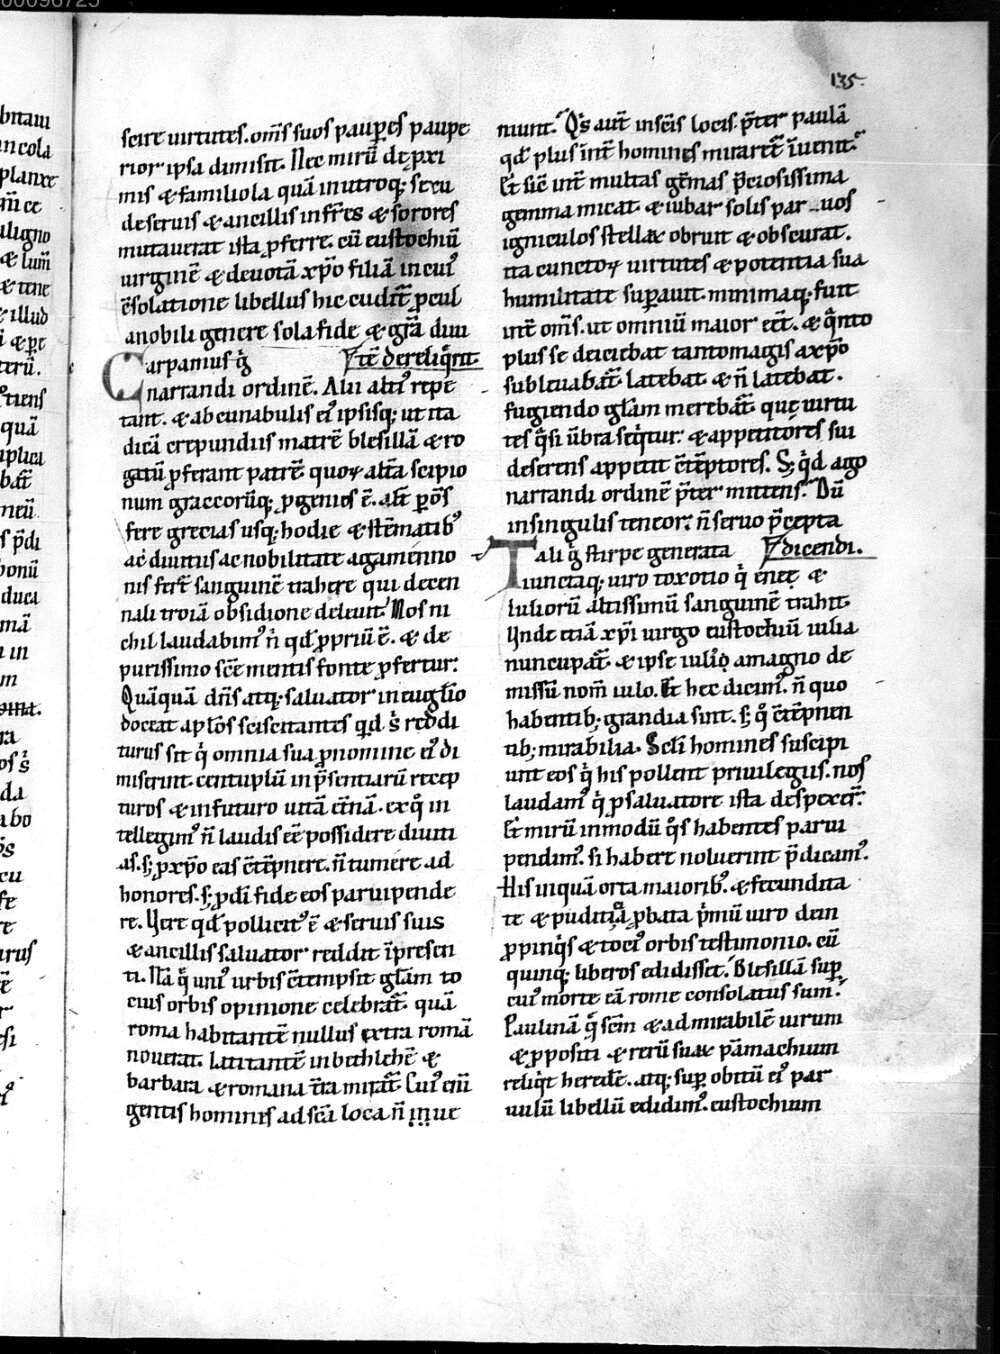 135.
scire uirtutes. om̄s suos paup̲es paupe
rior ipsa dimisit. Nec mirū de ꝓxi
mis & familiola quā in utroq; sexu
de seruis & ancillis in fr̄es & sorores
mutauerat ista ꝓferre. cū eustochiū
uirginē & deuotā xp̄o filiā in cuiꝰ
c̄solatione libellus hic cudit̄ ꝓcul
a nobili genere sola fide & gr̄a diui
Carpamus g̊ tē dereliq̄rit
narrandi ordinē. Alii altiꝰ repe
tant. & ab cunabulis eiꝰ ipsisq; ut ita
dicā crepundiis matrē blesillā & ro
gatū ꝓferant patrē quoꝝ altā scipio
num graccorūq; ꝓgenies ē. alt̄ ꝑ om̄s
fere grecias usq; hodie & stēmatibꝰ
ac̄ diuitiis ac nobilitate agamenno
nis fert̄ sanguinē trahere qui decen
nali troiā obsidione deleuit. Nos ni
chil laudabimꝰ n̊ qd̄ ꝓpriū ē. & de
purissimo scē mentis fonte ꝓfertur.
Quāquā dn̄s atq; saluator in euglīo
doceat aplōs sciscitantes qd̄ s̊ reddi
turus sit q̊ omnia sua ꝓ nomine eiꝰ di
miserint. centuplū in p̄sentiarū recep
turos & in futuro uitā et̄nā. ex q̊ in
tellegimꝰ n̄ laudis ēe possidere diuiti
as. s; ꝓ xp̄o eas c̄tēpnere. n̄ tumere ad
honores. s; ꝓ dī fide eos paruipende
re. Uere qd̄ pollicitꝰ ē & seruis suis
& ancillis saluator reddit ī presen
ti. Nā q̄ uniꝰ urbis c̄tempsit glām to
cius orbis opinione celebrat̄. quā
roma habitantē nullus extra romā
nouerat. latitantē in bethlehē &
barbara & romana t̄ra mirat̄. Cuiꝰ eni
gentis hominis ad scā loca n̄ inue
niunt. Qͥs aut̄ in scīs locis p̄ter paulā
qd̄ plus int̄ homines miraret̄ īuenit.
Et sic̄ int̄ multas gēmas p̄ciosissima
gemma micat. & iubar solis paruos
igniculos stellaꝝ obruit & obscurat.
ita cunctoꝝ uirtutes & potentia sua
humilitate suꝑauit. minimaq; fuit
int̄ om̄s. ut omniū maior eēt. & q̄nto
plus se deiciebat tanto magis a xp̄o
subleuabat̄. latebat. & n̄ latebat.
fugiendo glām merebat̄. que uirtu
tes q̄si ūbra seq̇tur. & appetitores sui
deserens appetit c̄tēptores. S; q̇d ago
narrandi ordinē p̄ter mittens. Dū
in singulis teneor. n̄ seruo p̄cepta
Tali g̊ stirpe generata dicendi.
iunctaq; uiro toxotio q̇ enee &
iuliorū altissimū sanguinē trahit.
Unde etiā xp̄i uirgo eustochiū iulia
nuncupat̄. & ipse iuliꝰ a magno de
missū nom̄ iulo. Et hec dicimꝰ. n̄ quo
habentib; grandia sint. s; q̊ c̄tēpnen
tib; mirabilia. Sclī homines suscipi
unt eos q̇ his pollent priuilegiis. nos
laudamꝰ q̇ ꝓ saluatore ista despexer̄.
Et mirū in modū q̊s habentes parui
pendimꝰ. si habere noluerint p̄dicamꝰ.
His inquā orta maioribꝰ. & fecundita
te & pudicitia ꝓbata p̄mū uiro dein
ꝓpinq̇s & tociꝰ orbis testimonio. cū
quinq; liberos edidisset. Blesillā suꝑ
cuiꝰ morte eā rome consolatus sum.
Paulinā q̄ scm̄ & admirabilē uirum
& ꝓpositi & rerū suaꝝ pāmachium
reliq̇t heredē. atq; suꝑ obitū eiꝰ par
uulū libellū edidimꝰ. eustochium